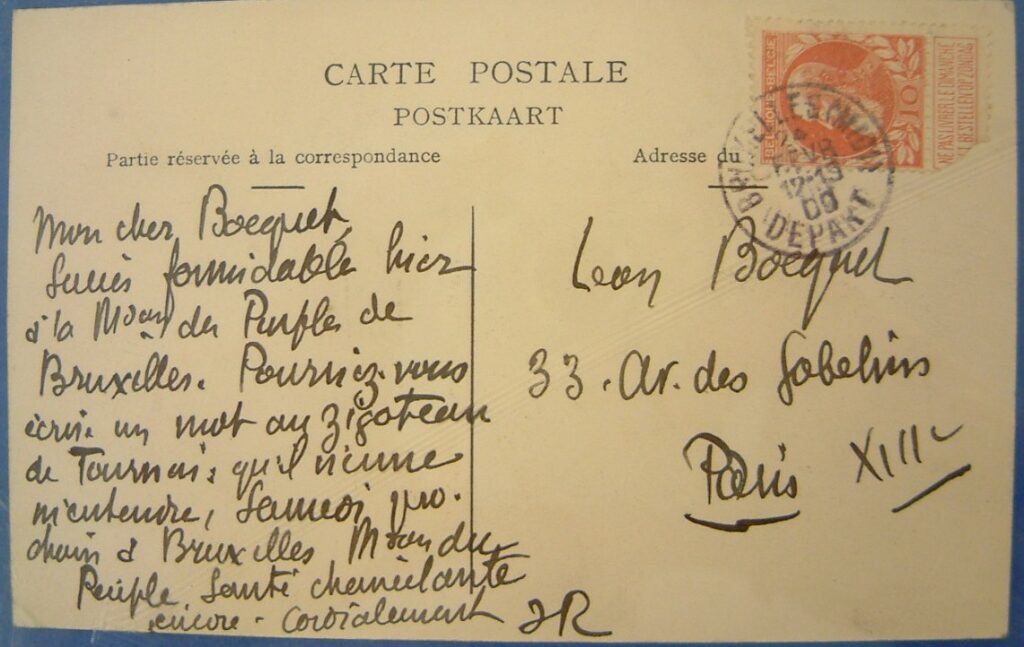 CARTE POSTALE
POSTKAART
Partie réservée à la correspondance
Adresse du
BELGIQUE BELGIË
10
NE PAS LIVRER LE DIMANCHE
NIET BESTELLEN OP ZONDAG
BRUXELLES
FEVR
12-13
09
DEPART
Mon cher Bocquet,
Succès formidable hier
à la Mson du Peuple de
Bruxelles. Pourriez-vous
écrire un mot au zigoteau
de Tournai, qu'il vienne
m'entendre, Samedi pro-
chain à Bruxelles Mson du
Peuple Santé chancelante
encore - Cordialement JR
Leon Bocquet
33. Av. des Gobelins
Paris XIIIe